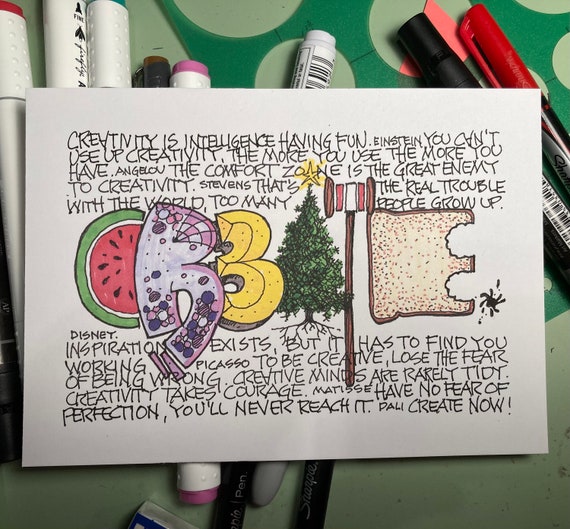 CREATIVITY IS INTELLIGENCE HAVING FUN. EINSTEIN YOU CAN'T
USE UP CREATIVITY. THE MORE YOU USE, THE MORE YOU
HAVE. ANGELOU THE COMFORT ZONE IS THE GREAT ENEMY
TO CREATIVITY. STEVENS THAT'S THE REAL TROUBLE
WITH THE WORLD, TOO MANY PEOPLE GROW UP.
CREATE
DISNEY.
INSPIRATION EXISTS, BUT IT HAS TO FIND YOU
WORKING PICASSO TO BE CREATIVE, LOSE THE FEAR
OF BEING WRONG. CREATIVE MINDS ARE RARELY TIDY.
CREATIVITY TAKES COURAGE. MATISSE HAVE NO FEAR OF
PERFECTION, YOU'LL NEVER REACH IT. DALI CREATE NOW!
FINE
Pen
Sharpie